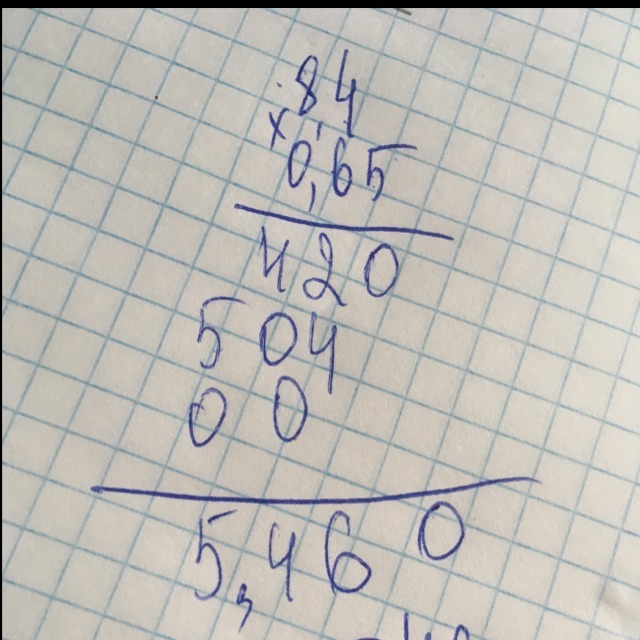 8,4
×
0,65
420
504
00
5,460